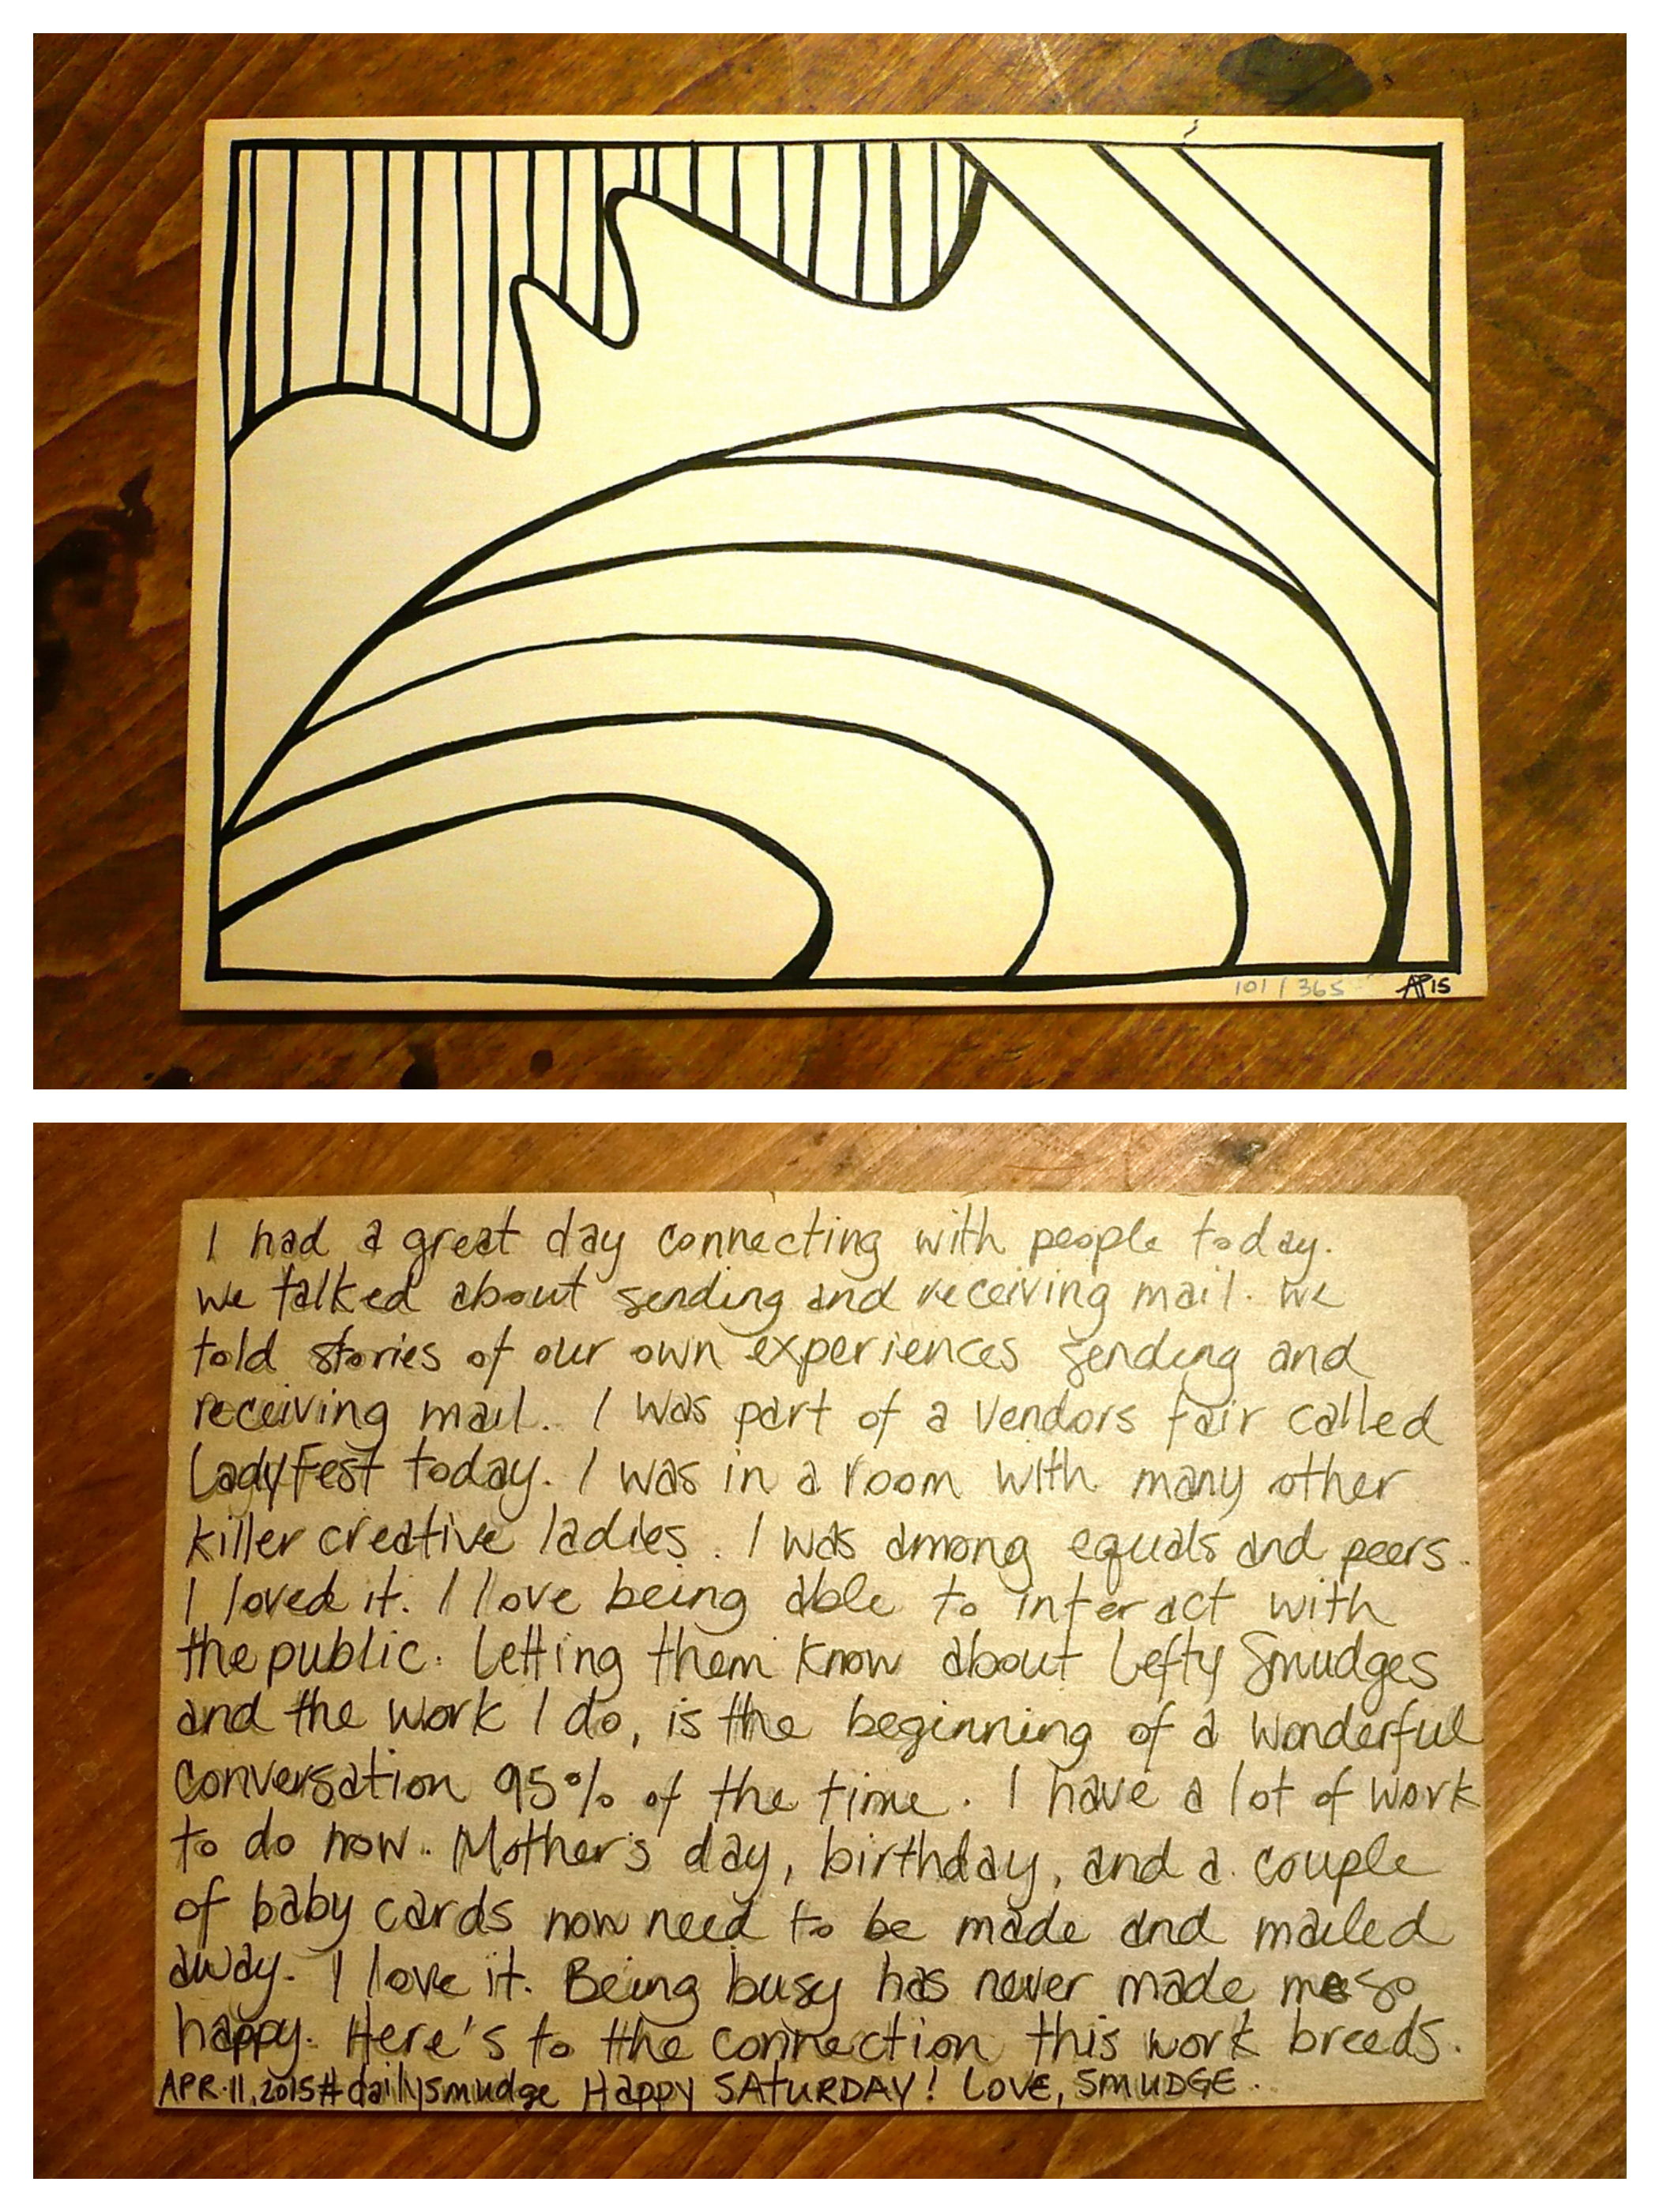 101/365 AP15
I had a great day connecting with people today.
We talked about sending and receiving mail. We
told stories of our own experiences sending and
receiving mail. I was part of a vendors fair called
LadyFest today. I was in a room with many other
killer creative ladies. I was among equals and peers.
I loved it. I love being able to interact with
the public. Letting them know about Lefty Smudges
and the work I do, is the beginning of a wonderful
conversation 95% of the time. I have a lot of work
to do now. Mother's day, birthday, and a couple
of baby cards now need to be made and mailed
away. I love it. Being busy has never made me so
happy. Here's to the connection this work breeds.
APR.11,2015#dailysmudge Happy SATURDAY! LOVE, SMUDGE.